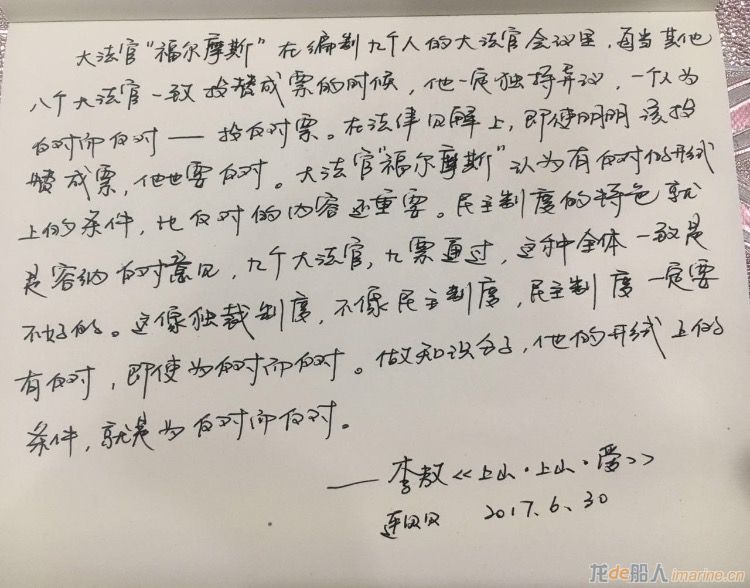 大法官“福尔摩斯”在编制九个人的大法官会议里，每当其他
八个大法官一致投赞成票的时候，他一定独持异议，一个人为
反对而反对——投反对票。在法律见解上，即使明明该投
赞成票，他也要反对。大法官“福尔摩斯”认为有反对的形式
上的条件，比反对的内容还重要。民主制度的特色就
是容纳反对意见，九个大法官，九票通过，这种全体一致是
不好的。这像独裁制度，不像民主制度，民主制度一定要
有反对，即使为反对而反对。做知识分子，他的形式上的
条件，就是为反对而反对。
——李敖《上山·上山·爱》
连贝贝 2017.6.30
龙de船人 imarine.cn